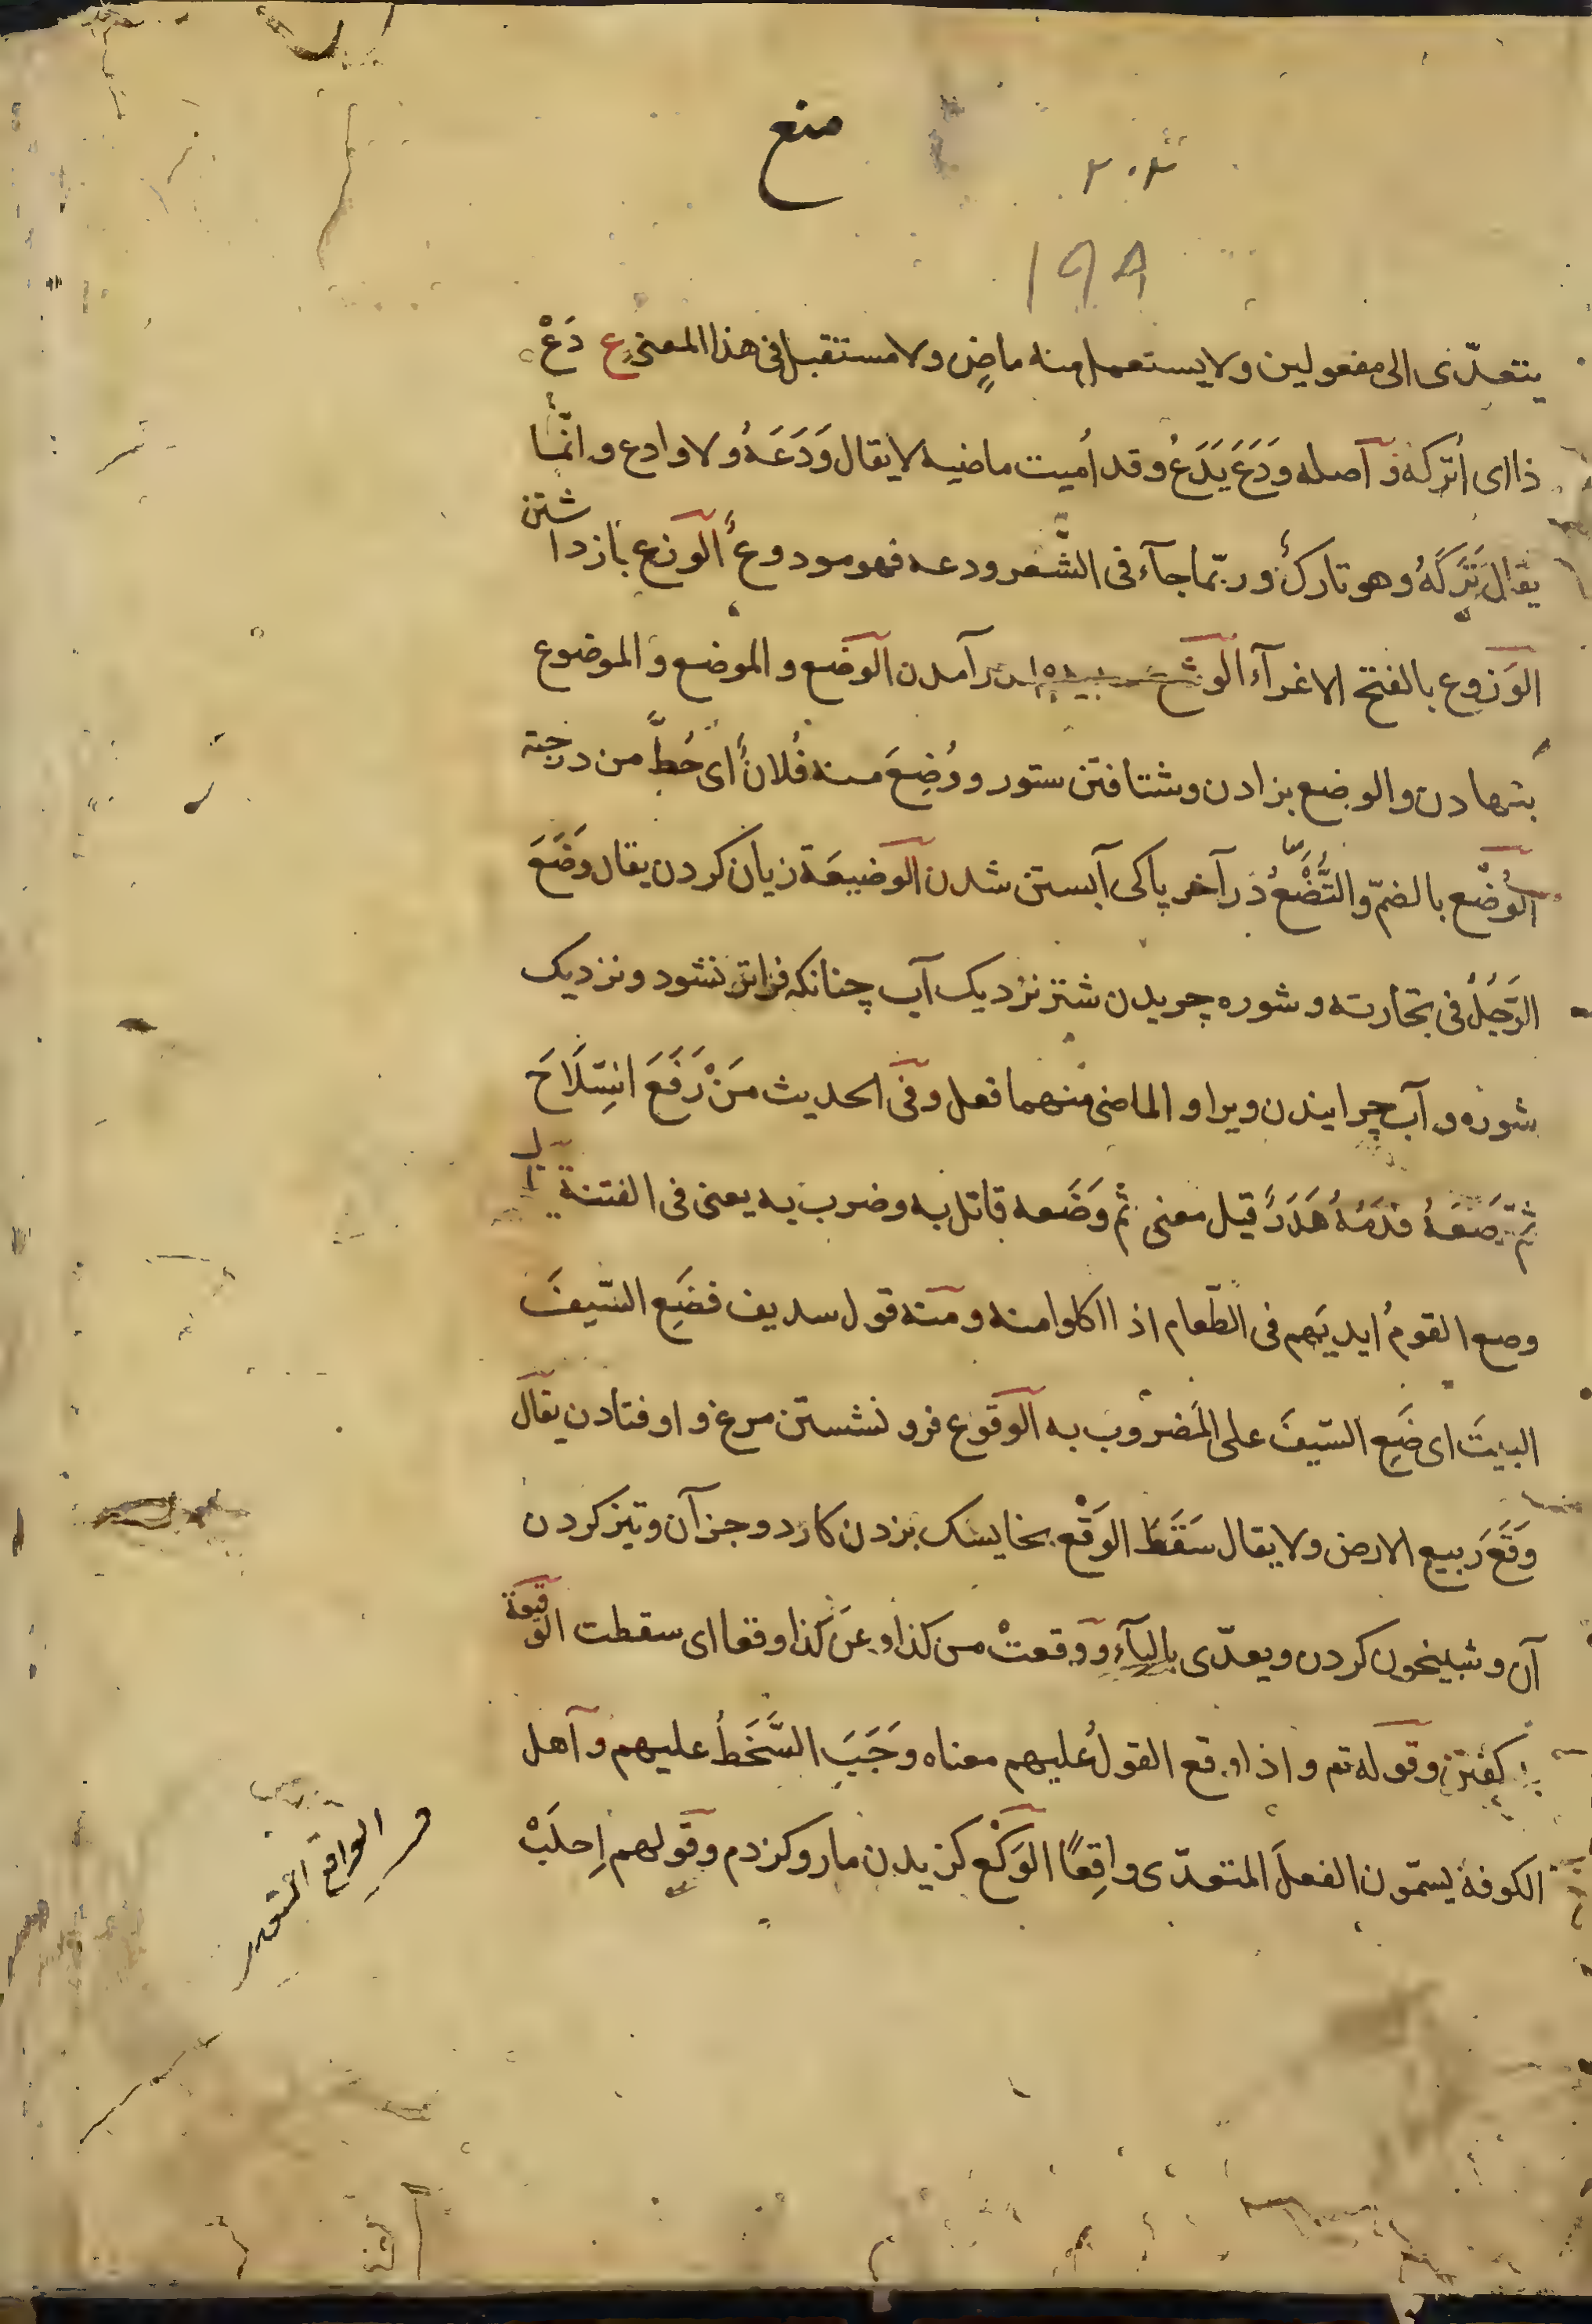 منع
۲۰۳
۱۹۸
يتعدّى الى مفعولين ولا يستعمل منه ماضٍ ولا مستقبل فى هذا المعنى ع دَعْ
ذا اى اُتركه وآصله وَدَعَ يَدَعُ وقد اُميت ماضيه لا يقال وَدَعَهُ ولا وادع وانّما
يقال تَرَكَهُ وهو تاركٌ وربّما جآء فى الشّعر ودعه فهو مودوعٌ الوزع بازداشتن
الوَزوع بالفتح الاغرآء الوشع برآمدن الوضع والموضع والموضوع
بنهادن والوضع بزادن وشتافتن ستور ووُضِعَ منه فُلانٌ اى حُطَّ من درجته
الوُضْع بالضمّ والتُّضْعُ در آخر پاكى آبستن شدن الوضيعَة زيان كردن يقال وَضَعَ
الرَّجُلُ فى تجارته وشوره چريدن شتر نزديك آب چنانكه فراتر نشود ونزديك
شوره وآب چرانيدن ويرا والماضى منهما فعل وفى الحديث مَنْ رَفَعَ السِّلَاحَ
ثمّ وَضَعَهُ فدَمُهُ هَدَرٌ قيل معنى ثم وَضَعه قاتل به وضرب به يعنى فى الفتنة
وضع القومُ ايديَهم فى الطّعام اذا اكلوا منه ومنه قول سديف فضَعِ السّيفَ
البيتَ اى ضَعِ السّيفَ على المَضروب به الوقوع فرو نشستن مرغ واوفتادن يقال
وَقَعَ رَبيع الارض ولا يقال سَقَطَ الوَقْع بخايسك بزدن كارد وجز آن وتيز كردن
آن وشبيخون كردن ويعدّى بالبآءِ ووقعتْ من كذا وعَن كذا وقعا اى سقطت الوقيعة
گفتن وقوله تع واذا وقع القولُ عليهم معناه وَجَبَ السَّخَطُ عليهم وآهل
الكوفة يسمّون الفعلَ المتعدّى واقِعًا الوَكْع گزيدن مار وكژدم وقولهم اِحلَبْ
الواقع المتعدى